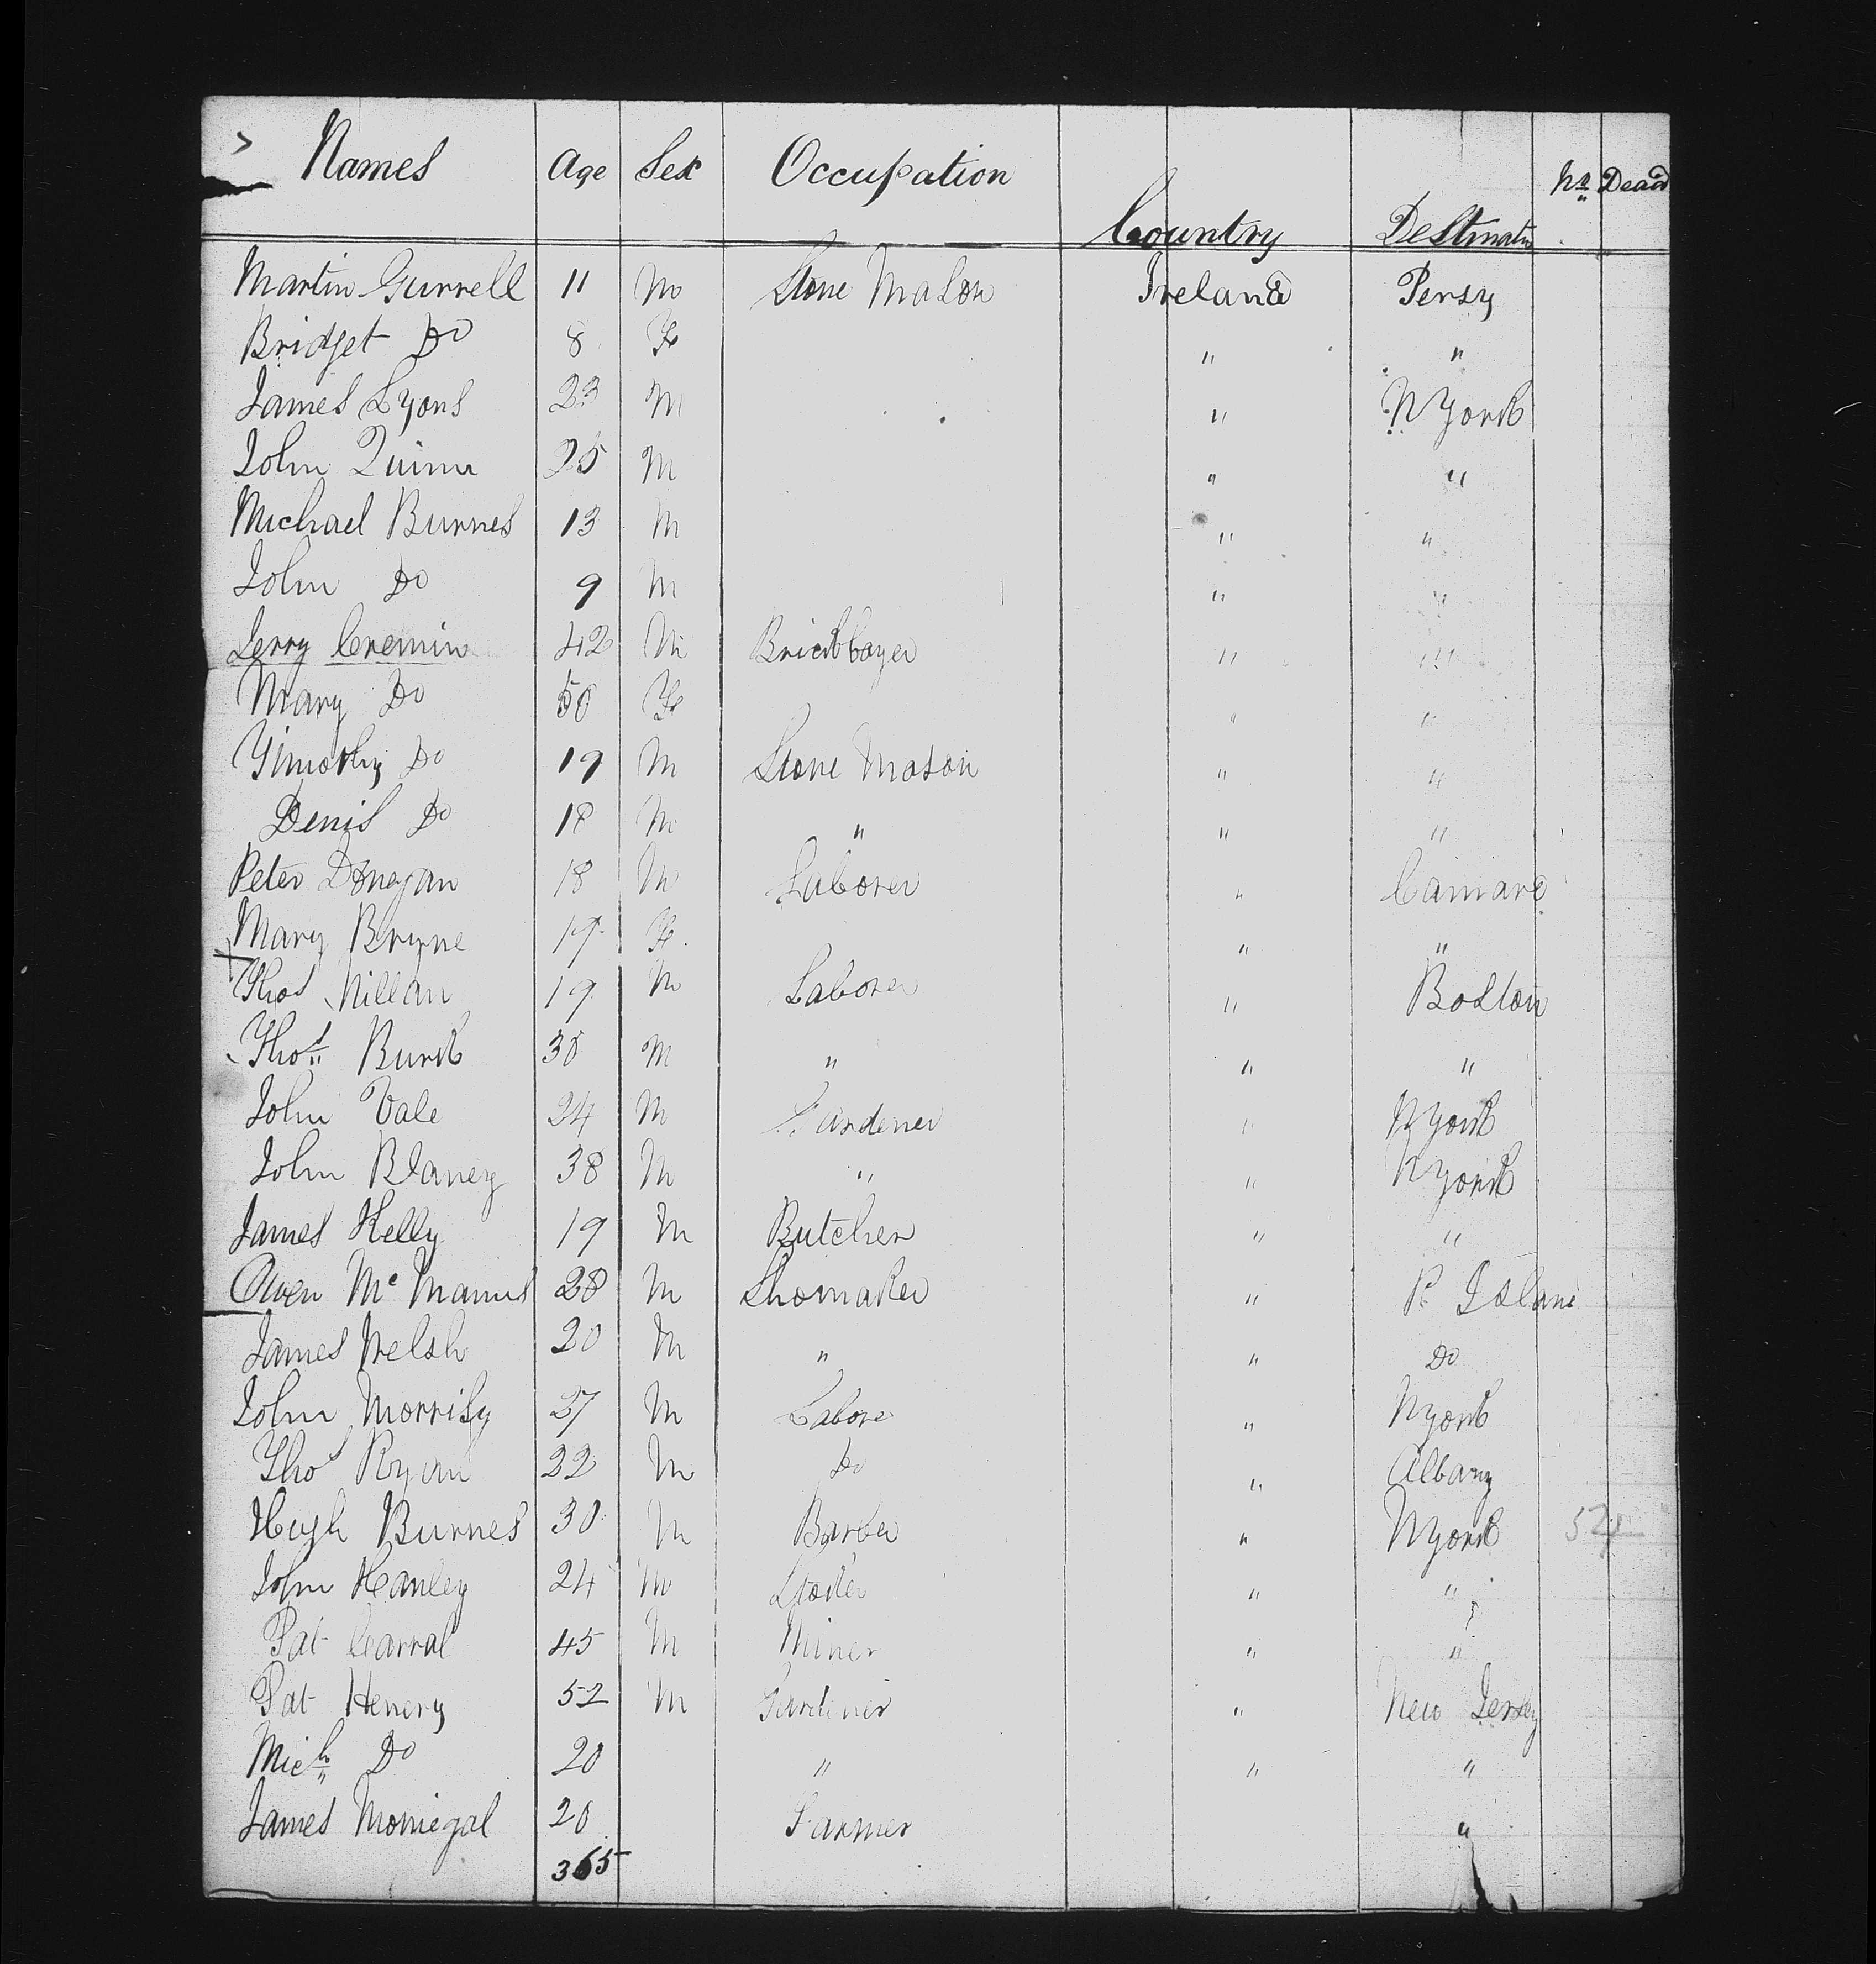 Names Age Sex Occupation Country Destinatn No Dead
Martin Gurrell 11 M Stone Mason Ireland Persy
Bridget Do 8 F " "
James Lyons 23 M " N York
John Quinn 25 M " "
Michael Burnes 13 M " "
John Do 9 M " "
Jerry Cremin 42 M Bricklayer " "
Mary Do 50 F " "
Timothy Do 19 M Stone Mason " "
Denis Do 18 M " " "
Peter Donegan 18 M Laborer "
Mary Bryne 17 F " "
Thos Nillan 19 M Laborer " Boston
Thos Burk 30 M " " "
John Vale 24 M Gardener " N York
John Blaney 38 M " " N York
James Kelly 19 M Butcher " "
Owen Mc Manus 28 M Shomaker " R Island
James Welsh 20 M " " Do
John Morrisy 27 M Labore " N York
Thos Ryan 22 M Do " Albany
Hugh Burnes 30 M Barber " N York
John Hanley 24 M " "
Pat Carral 45 M Miner " "
Pat Henery 52 M Gardener " New Jersey
Mich Do 20 " " "
James Moniegal 20 Farmer "
365